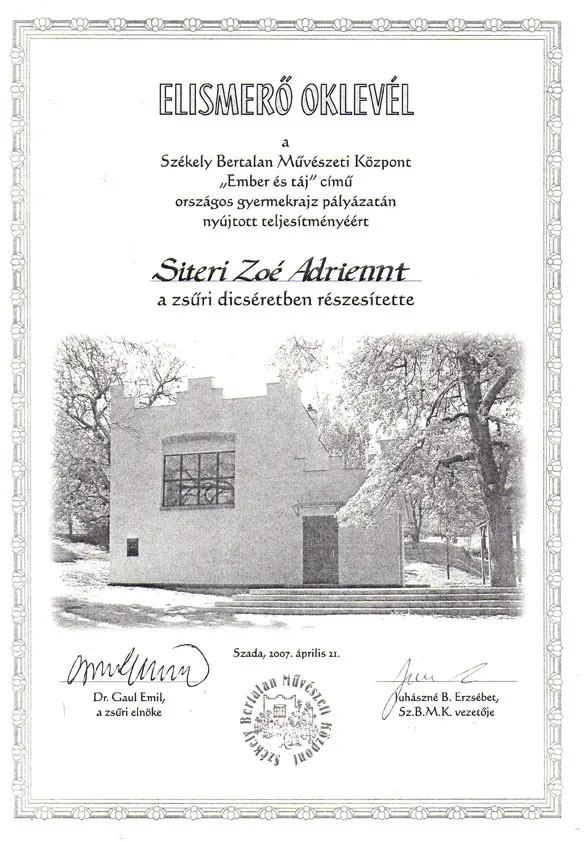 ELISMERŐ OKLEVÉL
a
Székely Bertalan Művészeti Központ
„Ember és táj” című
országos gyermekrajz pályázatán
nyújtott teljesítményéért
Siteri Zoé Adriennt
a zsűri dicséretben részesítette
Szada, 2007. április 21.
Dr. Gaul Emil,
a zsűri elnöke
Juhászné B. Erzsébet,
Sz.B.M.K. vezetője
Székely Bertalan Művészeti Központ